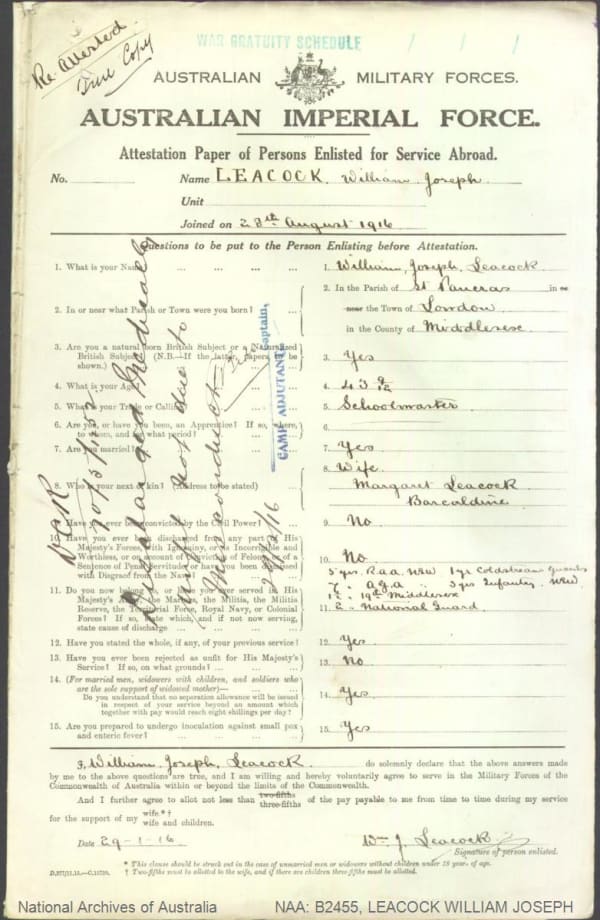 Re attested
True Copy
WAR GRATUITY SCHEDULE
AUSTRALIAN MILITARY FORCES.
AUSTRALIAN IMPERIAL FORCE.
Attestation Paper of Persons Enlisted for Service Abroad.
No. Name LEACOCK William Joseph
Unit
Joined on 28th August 1916
Questions to be put to the Person Enlisting before Attestation.
1. What is your Name ... 1. William Joseph Leacock
2. In or near what Parish or Town were you born? 2. In the Parish of St Pancras in or
near the Town of London
in the County of Middlesex
3. Are you a natural born British Subject or a Naturalized
British Subject? (N.B.—If the latter, papers to be
shown.) 3. Yes
4. What is your Age? 4. 43 9/12
5. What is your Trade or Calling? 5. Schoolmaster
6. Are you, or have you been, an Apprentice? If so, where,
to whom, and for what period? 6.
7. Are you married? 7. Yes
8. Who is your next of kin? (Address to be stated) 8. Wife
Margaret Leacock
Barcaldine
9. Have you ever been convicted by the Civil Power? 9. No
10. Have you ever been discharged from any part of His
Majesty's Forces, with Ignominy, or as Incorrigible and
Worthless, or on account of Conviction of Felony, or of a
Sentence of Penal Servitude, or have you been dismissed
with Disgrace from the Navy? 10. No
11. Do you now belong to, or have you ever served in, His
Majesty's Army, the Marines, the Militia, the Militia
Reserve, the Territorial Force, Royal Navy, or Colonial
Forces? If so, state which, and if not now serving,
state cause of discharge 11.
5 yrs. R.A.A. NSW 1 yr Coldstream Guards
7 " A.G.A " 3 yrs Infantry NSW
19th Middlesex
2 " National Guard
12. Have you stated the whole, if any, of your previous service? 12. Yes
13. Have you ever been rejected as unfit for His Majesty's
Service? If so, on what grounds? 13. No
14. (For married men, widowers with children, and soldiers who
are the sole support of widowed mother)—
Do you understand that no separation allowance will be issued
in respect of your service beyond an amount which
together with pay would reach eight shillings per day? 14. Yes
15. Are you prepared to undergo inoculation against small pox
and enteric fever? 15. Yes
Discharged Medically
unfit not due to
Misconduct
CAMP ADJUTANT
Captain,
I, William Joseph Leacock do solemnly declare that the above answers made
by me to the above questions are true, and I am willing and hereby voluntarily agree to serve in the Military Forces of the
Commonwealth of Australia within or beyond the limits of the Commonwealth.
And I further agree to allot not less than two-fifths three-fifths of the pay payable to me from time to time during my service
for the support of my wife.*† wife and children.
Date 29-1-16 Wm J. Leacock
Signature of person enlisted.
* This clause should be struck out in the case of unmarried men or widowers without children under 18 years of age.
† Two-fifths must be allotted to the wife, and if there are children three-fifths must be allotted.
National Archives of Australia NAA: B2455, LEACOCK WILLIAM JOSEPH